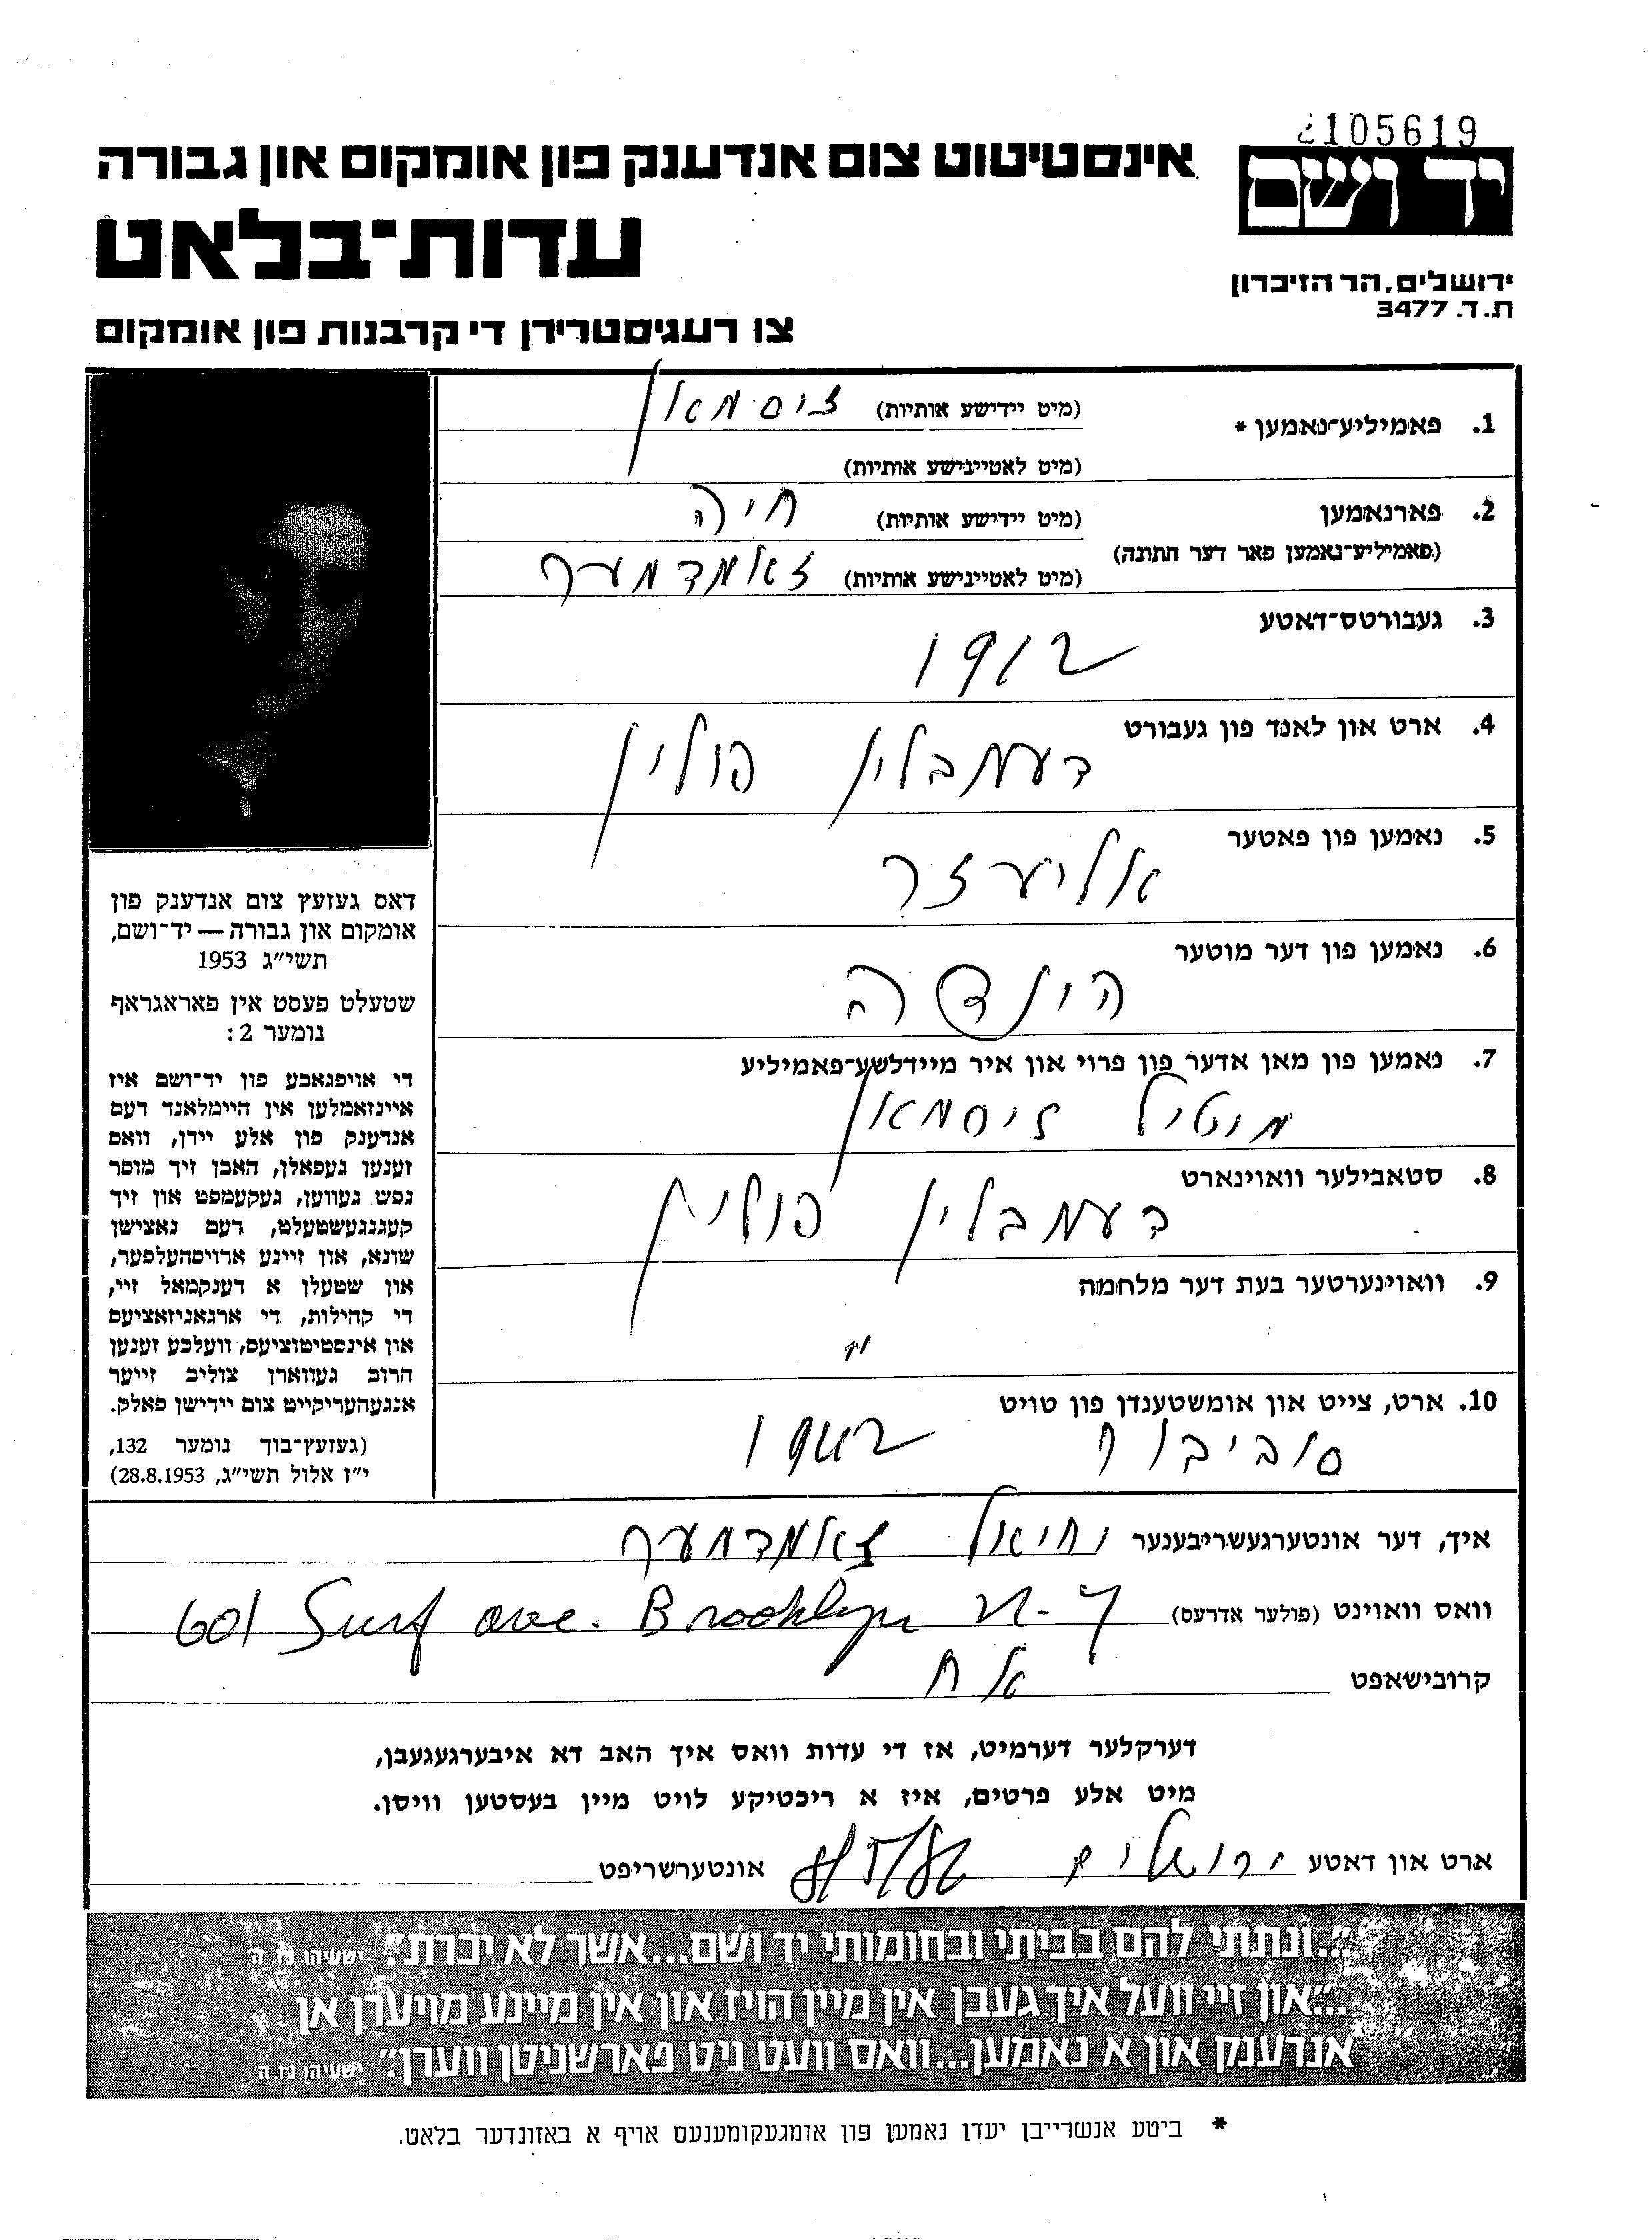 105619
יד ושם
אינסטיטוט צום אנדענק פון אומקום און גבורה
עדות־בלאט
ירושלים, הר הזיכרון
ת.ד. 3477
צו רעגיסטרירן די קרבנות פון אומקום
1. פאמיליע־נאמען * (מיט יידישע אותיות) זיסמאן
(מיט לאטיינישע אותיות)
2. פארנאמען (מיט יידישע אותיות) חיה
(פאמיליע־נאמען פאר דער חתונה) (מיט לאטיינישע אותיות) זאמדמער
3. געבורטס־דאטע
1912
4. ארט און לאנד פון געבורט
דעמבלין פולין
5. נאמען פון פאטער
אליעזר
6. נאמען פון דער מוטער
הינדה
7. נאמען פון מאן אדער פון פרוי און איר מיידלשע־פאמיליע
מוטיל זיסמאן
8. סטאבילער וואוינארט
דעמבלין פולין
9. וואוינערטער בעת דער מלחמה
״
10. ארט, צייט און אומשטענדן פון טויט
סוביבור 1942
דאס געזעץ צום אנדענק פון
אומקום און גבורה — יד־ושם,
תשי״ג 1953
שטעלט פעסט אין פאראגראף
נומער 2:
די אויפגאבע פון יד־ושם איז
איינזאמלען אין היימלאנד דעם
אנדענק פון אלע יידן, וואס
זענען געפאלן, האבן זיך מוסר
נפש געווען, געקעמפט און זיך
קעגנגעשטעלט, דעם נאצישן
שונא, און זיינע ארויסהעלפער,
און שטעלן א דענקמאל זיי,
די קהילות, די ארגאניזאציעס
און אינסטיטוציעס, וועלכע זענען
חרוב געווארן צוליב זייער
אנגעהעריקייט צום יידישן פאלק.
(געזעץ־בוך נומער 132,
י״ז אלול תשי״ג, 28.8.1953)
איך, דער אונטערגעשריבענער יחיאל זאמדמער
וואס וואוינט (פולער אדרעס) 601 Surf ave. Brooklyn N-Y
קרובישאפט אח
דערקלער דערמיט, אז די עדות וואס איך האב דא איבערגעגעבן,
מיט אלע פרטים, איז א ריכטיקע לויט מיין בעסטען וויסן.
ארט און דאטע ירושלים אונטערשריפט
"...ונתתי להם בביתי ובחומותי יד ושם...אשר לא יכרת" ישעיהו נו ה
..."און זיי וועל איך געבן אין מיין הויז און אין מיינע מויערן אן
אנדענק און א נאמען...וואס וועט ניט פארשניטן ווערן" ישעיהו נו ה
* ביטע אנשרייבן יעדן נאמען פון אומגעקומענעם אויף א באזונדער בלאט.